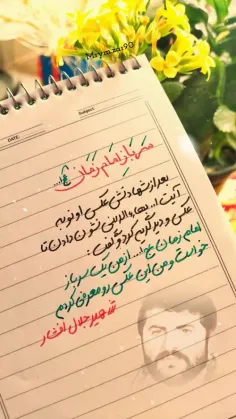 Mrymzar90
DATE:
Subject:
سربازِ امام زمان عج...
بعد از شهادتش عکس او رو به
آیت الله بهاءالدینی نشون دادن تا
عکس و دید گریه کرد و گفت:
امام زمان عج... از من یک سرباز
خواست و من این عکس رو معرفی کردم
شهید جلال افشار